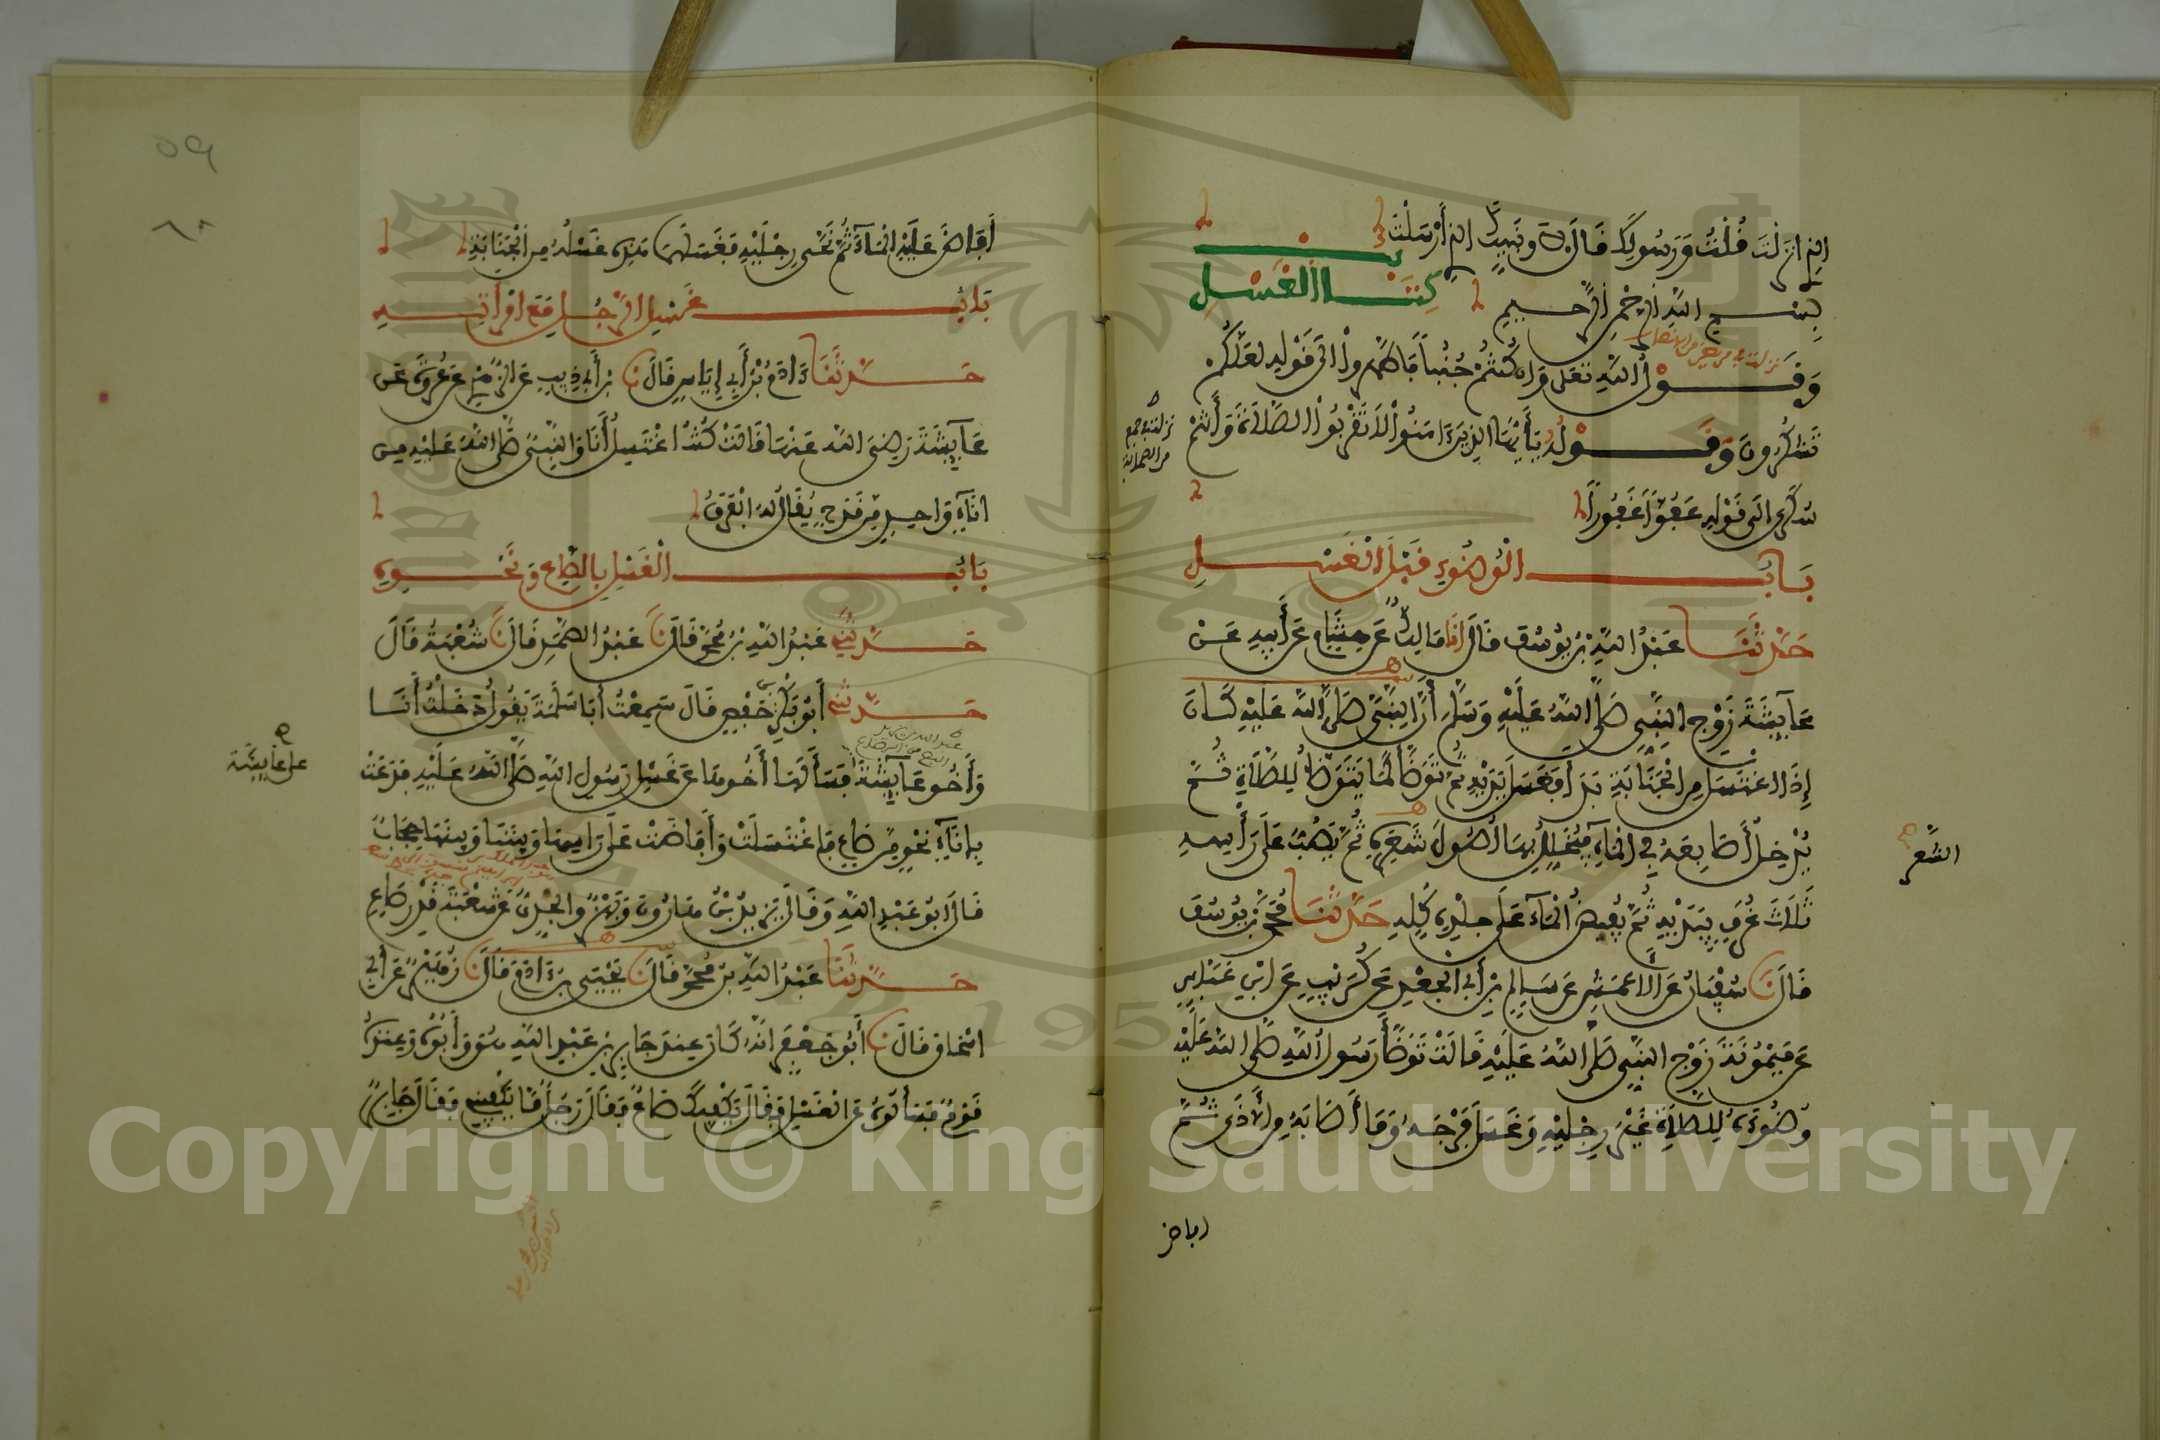 الذي انزلت قلت ورسولك قال لا ونبيك الذي أرسلت
بسم الله الرحمن الرحيم
كتاب الغسل
وقول الله تعلى وان كنتم جنبا فاطهروا الى قوله لعلكم
تشكرون وقوله يأيها الذين ءامنوا لا تقربوا الصلاة وأنتم
سكرى الى قوله عفوا غفورا
باب الوضوء قبل الغسل
حدثنا عبد الله بن يوسف قال انا مالك عن هشام عن أبيه عن
عايشة زوج النبي صلى الله عليه وسلم أن النبي صلى الله عليه كان
إذا اغتسل من الجنابة بدأ فغسل يديه ثم توضأ كما يتوضأ للصلاة ثم
يدخل أصابعه في الماء فيخلل بها أصول شعره ثم يصب على رأسه
الشعر
ثلاث غرف بيديه ثم يفيض الماء على جلده كله حدثنا محمد بن يوسف
قال نا سفيان عن الاعمش عن سالم بن أبي الجعد عن كريب عن ابن عباس
عن ميمونة زوج النبي صلى الله عليه قالت توضأ رسول الله صلى الله عليه
وضوءه للصلاة غير رجليه وغسل فرجه وما أصابه من الأذى ثم
افاض
٥٩
أفاض عليه الماء ثم نحى رجليه فغسلهما هذه غسله من الجنابة
باب غسل الرجل مع امرأته
حدثنا ءادم بن أبي إياس قال نا ابن أبي ذيب عن الزهري عن عروة عن
عايشة رضي الله عنها قالت كنت اغتسل أنا والنبي صلى الله عليه من
اناء واحد من قدح يقال له الفرق
باب الغسل بالصاع ونحوه
حدثني عبد الله بن محمد قال نا عبد الصمد قال نا شعبة قال
حدثني أبو بكر بن حفص قال سمعت أبا سلمة يقول دخلت أنا
وأخو عايشة فسألها أخوها عن غسل رسول الله صلى الله عليه فدعت
على عايشة
بإناء نحو من صاع فاغتسلت وأفاضت على رأسها وبيننا وبينها حجاب
قال ابو عبد الله وقال يزيد بن هارون وبهز والجدي عن شعبة قدر صاع
حدثنا عبد الله بن محمد قال نا يحيى بن ءادم قال نا زهير عن أبي
اسحاق قال نا أبو جعفر انه كان عند جابر بن عبد الله هو وأبوه وعنده
قوم فسألوه عن الغسل فقال يكفيك صاع فقال رجل ما يكفيني فقال جابر
Copyright © King Saud University
1957